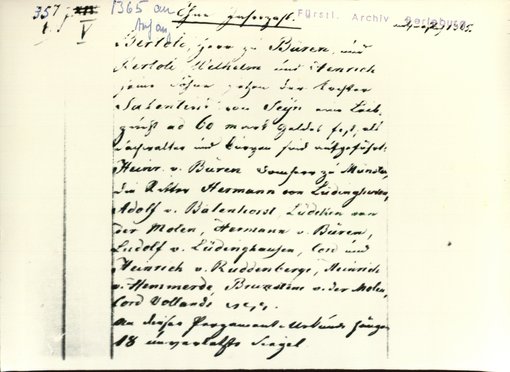 357 1365 an
V Anfang
Ohne Jahrzahl. Fürstl. Archiv Berleburg
Bertolt, Herr zu Büren, und
Bertolt Wilhelm und Henrich
seine Söhne geben der Tochter
von Seyn eine Leib-
ad 60 mark Geldes fest, als
und Bürgen sind aufgeführt:
Heinr. v. Büren Domherr zu Münster,
die Ritter Hermann von Lüdinghausen,
Adolf v. Batenhorst, Lüdeken van
der Molen, Hermann v. Büren,
Ludolf v. Lüdenghausen, Cord und
Heinrich v. Ruddenberge, Heinrich
v. Hemmerde, v. der Molen,
Cord Vollands
An dieser Pergament-Urkunde hängen
18 unverletzte Siegel